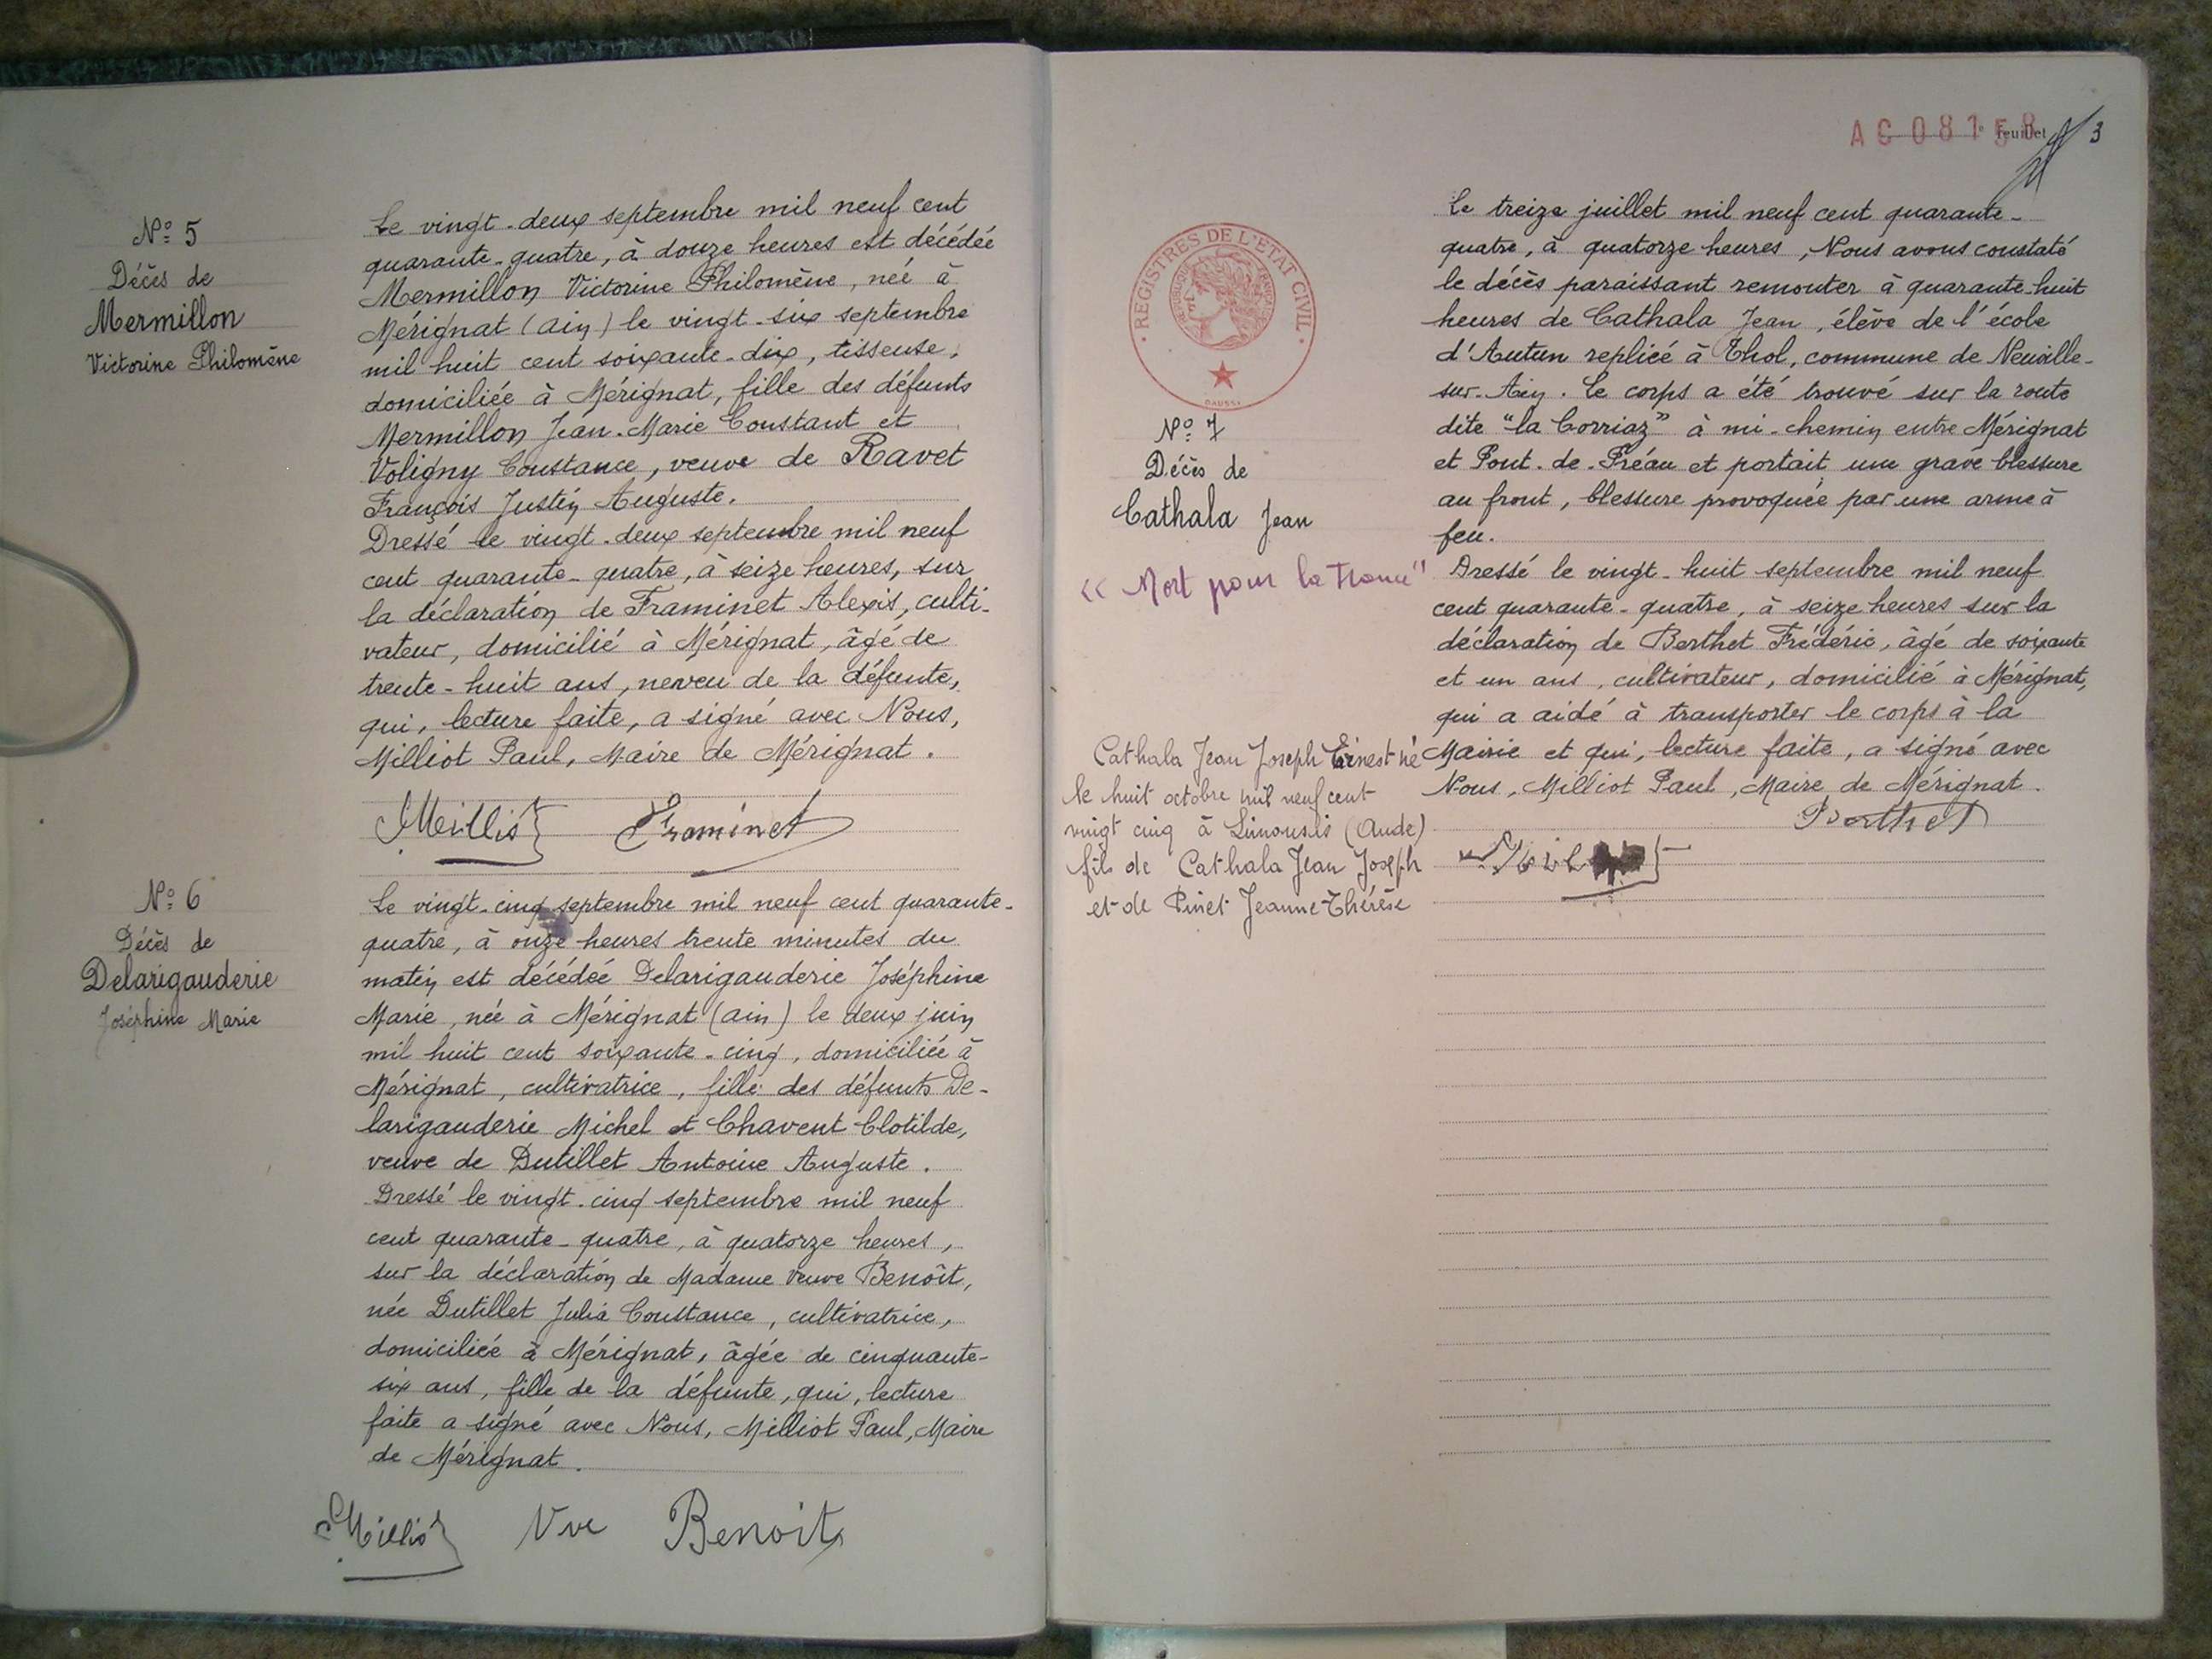 Nº 5
Décès de
Mermillon
Victorine Philomène
Le vingt-deux septembre mil neuf cent
quarante-quatre, à douze heures est décédée
Mermillon Victorine Philomène, née à
Mérignat (Ain) le vingt-six septembre
mil huit cent soixante-dix, tisseuse,
domiciliée à Mérignat, fille des défunts
Mermillon Jean-Marie Constant et
Voligny Constance, veuve de Ravet
François Justin Auguste.
Dressé le vingt-deux septembre mil neuf
cent quarante-quatre, à seize heures, sur
la déclaration de Framinet Alexis, culti-
vateur, domicilié à Mérignat, âgé de
trente-huit ans, neveu de la défunte,
qui, lecture faite, a signé avec Nous,
Milliot Paul, Maire de Mérignat.
Framinet
Nº 6
Décès de
Delarigauderie
Joséphine Marie
Le vingt-cinq septembre mil neuf cent quarante-
quatre, à onze heures trente minutes du
matin est décédée Delarigauderie Joséphine
Marie, née à Mérignat (ain) le deux juin
mil huit cent soixante-cinq, domiciliée à
Mérignat, cultivatrice, fille des défunts De-
larigauderie Michel et Chavent Clotilde,
veuve de Dutillet Antoine Auguste.
Dressé le vingt-cinq septembre mil neuf
cent quarante-quatre, à quatorze heures,
sur la déclaration de Madame veuve Benoît,
née Dutillet Julia Constance, cultivatrice,
domiciliée à Mérignat, âgée de cinquante-
six ans, fille de la défunte, qui, lecture
faite a signé avec Nous, Milliot Paul, Maire
de Mérignat.
Vve Benoit
AC08158
Feuillet 3
REGISTRES DE L'ÉTAT CIVIL
RÉPUBLIQUE FRANÇAISE
DAUSSY
Nº 7
Décès de
Cathala Jean
"Mort pour la France"
Cathala Jean Joseph Ernest né
le huit octobre mil neuf cent
vingt cinq à Limousis (Aude)
fils de Cathala Jean Joseph
et de Pinet Jeanne-Thérèse
Le treize juillet mil neuf cent quarante-
quatre, à quatorze heures, Nous avons constaté
le décès paraissant remonter à quarante-huit
heures de Cathala Jean, élève de l'école
d'Autun replicé à Thol, commune de Neuville-
sur-Ain. Le corps a été trouvé sur la route
dite "la Corriaz" à mi-chemin entre Mérignat
et Pont-de-Préau et portait une grave blessure
au front, blessure provoquée par une arme à
feu.
Dressé le vingt-huit septembre mil neuf
cent quarante-quatre, à seize heures sur la
déclaration de Berthet Frédéric, âgé de soixante
et un ans, cultivateur, domicilié à Mérignat,
qui a aidé à transporter le corps à la
Mairie et qui, lecture faite, a signé avec
Nous, Milliot Paul, Maire de Mérignat.
Berthet